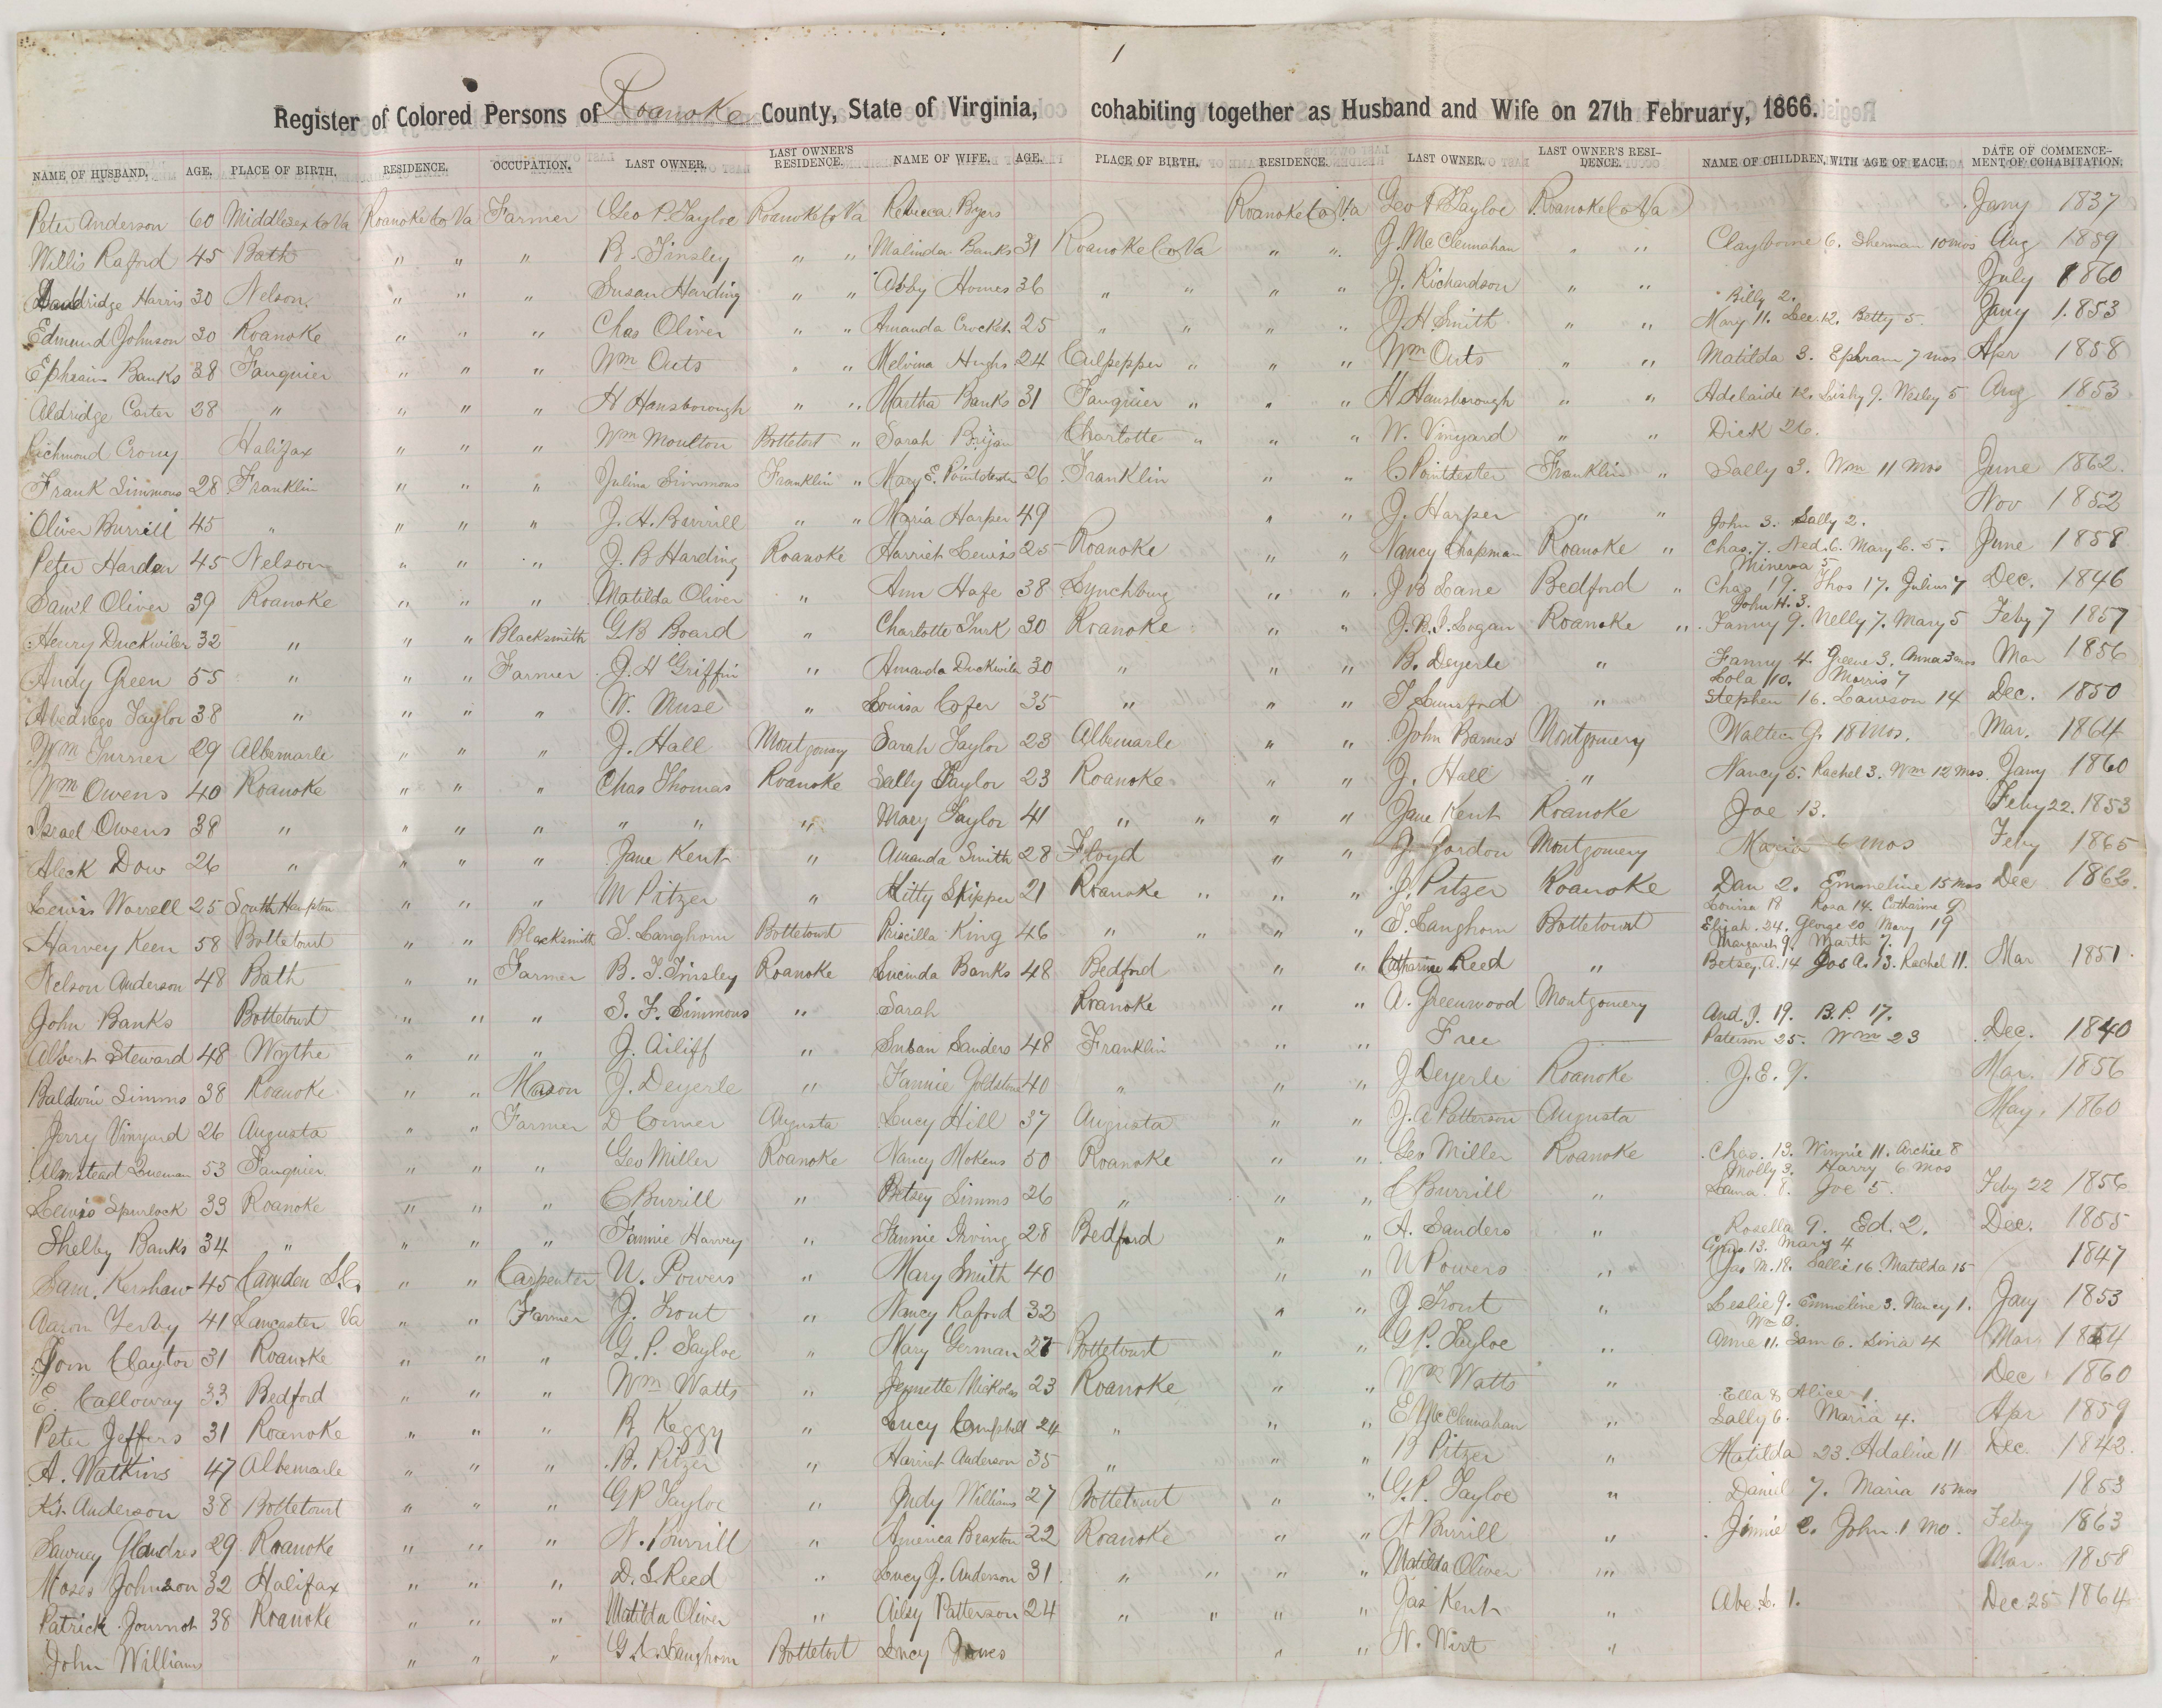 1
Register of Colored Persons of Roanoke County, State of Virginia, cohabiting together as Husband and Wife on 27th February, 1866.
NAME OF HUSBAND. AGE. PLACE OF BIRTH. RESIDENCE. OCCUPATION. LAST OWNER. LAST OWNER'S RESIDENCE. NAME OF WIFE. AGE. PLACE OF BIRTH. RESIDENCE. LAST OWNER. LAST OWNER'S RESIDENCE. NAME OF CHILDREN, WITH AGE OF EACH. DATE OF COMMENCEMENT OF COHABITATION.
Peter Anderson 60 Middlesex Co Va Roanoke Co Va Farmer Geo P. Tayloe Roanoke Co Va Rebecca Byers Roanoke Co Va Geo P Tayloe Roanoke Co Va Jany 1837
Willis Raford 45 Bath " " " B. Tinsley " " Malinda Banks 31 Roanoke Co Va " " J. McClennahan " " Clayborne 6. Sherman 10 mos Aug 1859
Harris 30 Nelson " " " Susan Harding " " Abby Homes 36 " " " " J. Richardson " " July 1860
Edmund Johnson 30 Roanoke " " " Chas Oliver " " Amanda Crocket 25 " " " " J. H. Smith " " Billy 2. Mary 11. Lee 12. Betty 5 Jany 1853
Ephraim Banks 38 Fauquier " " " Wm Outs " " Melvina Hughs 24 Culpepper " " " Wm Outs " " Matilda 3. Ephram 7 mos Apr 1858
Aldridge Carter 28 " " " " H Hansborough " " Martha Banks 31 Fauquier " " " H. Hansborough " " Adelaide 12. 9. Wesley 5 Aug 1853
Richmond Crony Halifax " " " Wm Moulton Bottetort " Sarah Bryan Charlotte " " " W. Vinyard " " Dick 26.
Frank Simmons 28 Franklin " " " Julina Simmons Franklin " Mary E. Pointdexter 26 Franklin " " C Pointdexter Franklin " Sally 3. Wm 11 Mos June 1862
Oliver Burrill 45 " " " " J. H. Burrill " " Maria Harper 49 " " J. Harper " " Nov 1852
Peter Harden 45 Nelson " " " J. B Harding Roanoke Harriet Lewis 25 Roanoke " " Nancy Chapman Roanoke " John 3. Sally 2. Chas. 7. Ned. 6. Mary C. 5. June 1858
Saml Oliver 39 Roanoke " " " Matilda Oliver " Ann Hafe 38 Lynchburg " " J B Lane Bedford " Minerva 5 Chas 19. Thos 17. Julius 7 Dec. 1846
Henry Duckwiler 32 " " " Blacksmith G B Board " Charlotte Turk 30 Roanoke " " Logan Roanoke " John H. 3. Fanny 9. Nelly 7. Mary 5 Feby 7 1857
Andy Green 55 " " " Farmer J. H Griffin " Amanda Duckwiler 30 " " " B. Deyerle " Fanny 4. Greene 3. Anna 3 mos Mar 1856
Abednego Taylor 38 " " " " W. Muse " Louisa Cofer 35 " " " T Lunsford " Lola 10. Morris 7 Stephen 16. Lawson 14 Dec. 1850
Wm Turner 29 Albemarle " " " J. Hall Montgomery Sarah Taylor 23 Albemarle " " John Barnes Montgomery Walter G. 18 Mos. Mar. 1864
Wm Owens 40 Roanoke " " " Chas Thomas Roanoke Sally Taylor 23 Roanoke " " J. Hall " Nancy 5. Rachel 3. Wm 12 Mos. Jany 1860
Israel Owens 38 " " " " " " " Mary Taylor 41 " " " " Jane Kent Roanoke Joe 13. Feby 22. 1853
Aleck Dow 26 " " " " Jane Kent " Amanda Smith 28 Floyd " " J. Gordon Montgomery Maria 6 mos Feby 1865
Lewis Worrell 25 South Hampton " " " M Pitzer " Kitty Skipper 21 Roanoke " " " J. Pitzer Roanoke Dan 2. Emmeline 15 Mos Dec 1862
Harvey Keen 58 Bottetourt " " Blacksmith T. Langhorn Bottetourt Priscilla King 46 " " " T. Langhorn Bottetourt Louisa 18 Rosa 14. Catharine 9 Elijah 24. George 20 Mary 19
Nelson Anderson 48 Bath " Farmer B. T. Tinsley Roanoke Lucinda Banks 48 Bedford " " Catharine Reed " Margaret 9. Marth 7. Betsey A. 14 Jos A. 13. Rachel 11. Mar 1851
John Banks Bottetourt " " " S. F. Simmons " Sarah Roanoke " " A. Greenwood Montgomery
Albert Steward 48 Wythe " " " J. Ailiff " Susan Sanders 48 Franklin " " Free And. J. 19. B. P. 17. Paterson 25. Wm 23 Dec. 1840
Baldwin Simms 38 Roanoke " " Mason J. Deyerle " Fannie Goldston 40 " " " J Deyerle Roanoke J. E. 9. Mar. 1856
Jerry Vinyard 26 Augusta " " Farmer D Comer Augusta Lucy Hill 37 Augusta " " J. A Patterson Augusta May 1860
Almstead 53 Fauquier " " " Geo Miller Roanoke Nancy Mokens 50 Roanoke " " Geo Miller Roanoke
Lewis Spurlock 33 Roanoke " " " C Burrill " Betsey Simms 26 " " " C Burrill " Chas. 13. Winnie 11. Archie 8 Molly 3. Harry 6 mos 8. Joe 5. Feby 22 1856
Shelby Banks 34 " " " " Fannie Harvey " Fannie Irving 28 Bedford " " A. Sanders " Rosella 9. Ed. 2. Dec. 1855
Sam. Kershaw 45 Camden S.C. " " Carpenter N. Powers " Mary Smith 40 " " N Powers " 13. Mary 4 Jas M. 18. Sallie 16. Matilda 15 1847
Aaron Yerby 41 Lancaster Va " " Farmer J. Trout " Nancy Raford 32 " " J Trout " Leslie 9. Emmeline 3. Nancy 1. Jany 1853
Tom Claytor 31 Roanoke " " " G. P. Tayloe " Mary German 27 Bottetourt " " G. P. Tayloe " Anna 11. Sam 6. Lina 4 Mar 1854
E. Calloway 33 Bedford " " " Wm Watts " Jennette Nickolas 23 Roanoke " " Wm Watts " Dec 1860
Peter Jeffers 31 Roanoke " " " B Keggy " Lucy Campbell 24 " " " E McClennahan " Ella & Alice 1. Sally 6. Maria 4. Apr 1859
A. Watkins 47 Albemarle " " " B. Pitzer " Harriet Anderson 35 " " " B Pitzer " Matilda 23. Adaline 11 Dec. 1842
Kit Anderson 38 Bottetourt " " " G P Tayloe " Judy Williams 27 Bottetourt " " G. P. Tayloe " Daniel 7. Maria 15 mos 1853
Sawney Glandres 29 Roanoke " " " N. Burrill " America Braxton 22 Roanoke " " N Burrill " Jinnie 2. John 1 Mo. Feby 1863
Moses Johnson 32 Halifax " " " D. S. Reed " Lucy J. Anderson 31 " " " Matilda Oliver " Mar. 1858
Patrick Journot 38 Roanoke " " " Matilda Oliver " Ailsy Patterson 24 " " " " Jas Kent " Abe L. 1. Dec 25 1864
John William " " " Langhorn Bottetort Lucy Jones " " N. Wirt "